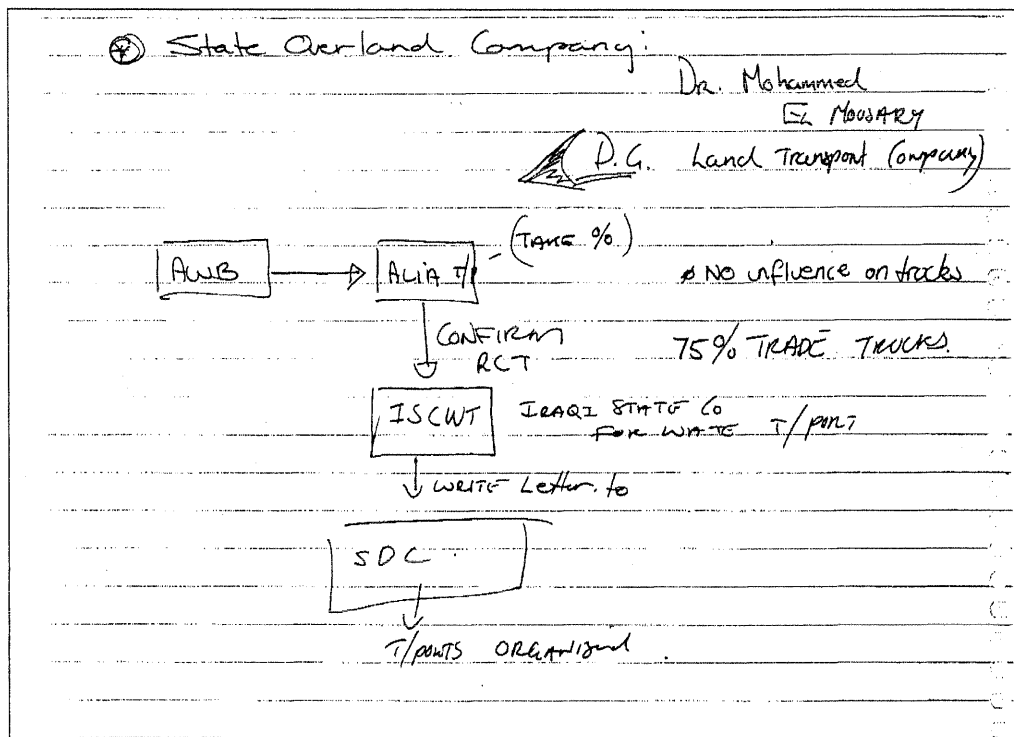 State Overland Company:
Dr. Mohammed
EL MOUSARY
D.G. Land Transport Company)
(TAKE %)
AWB
ALIA T/
Ø No influence on trucks
CONFIRM
RCT
75% TRADE TRUCKS.
ISCWT
IRAQI STATE Co
FOR WATE T/PORT
WRITE Letter to
SOC
T/PORTS ORGANIZED.